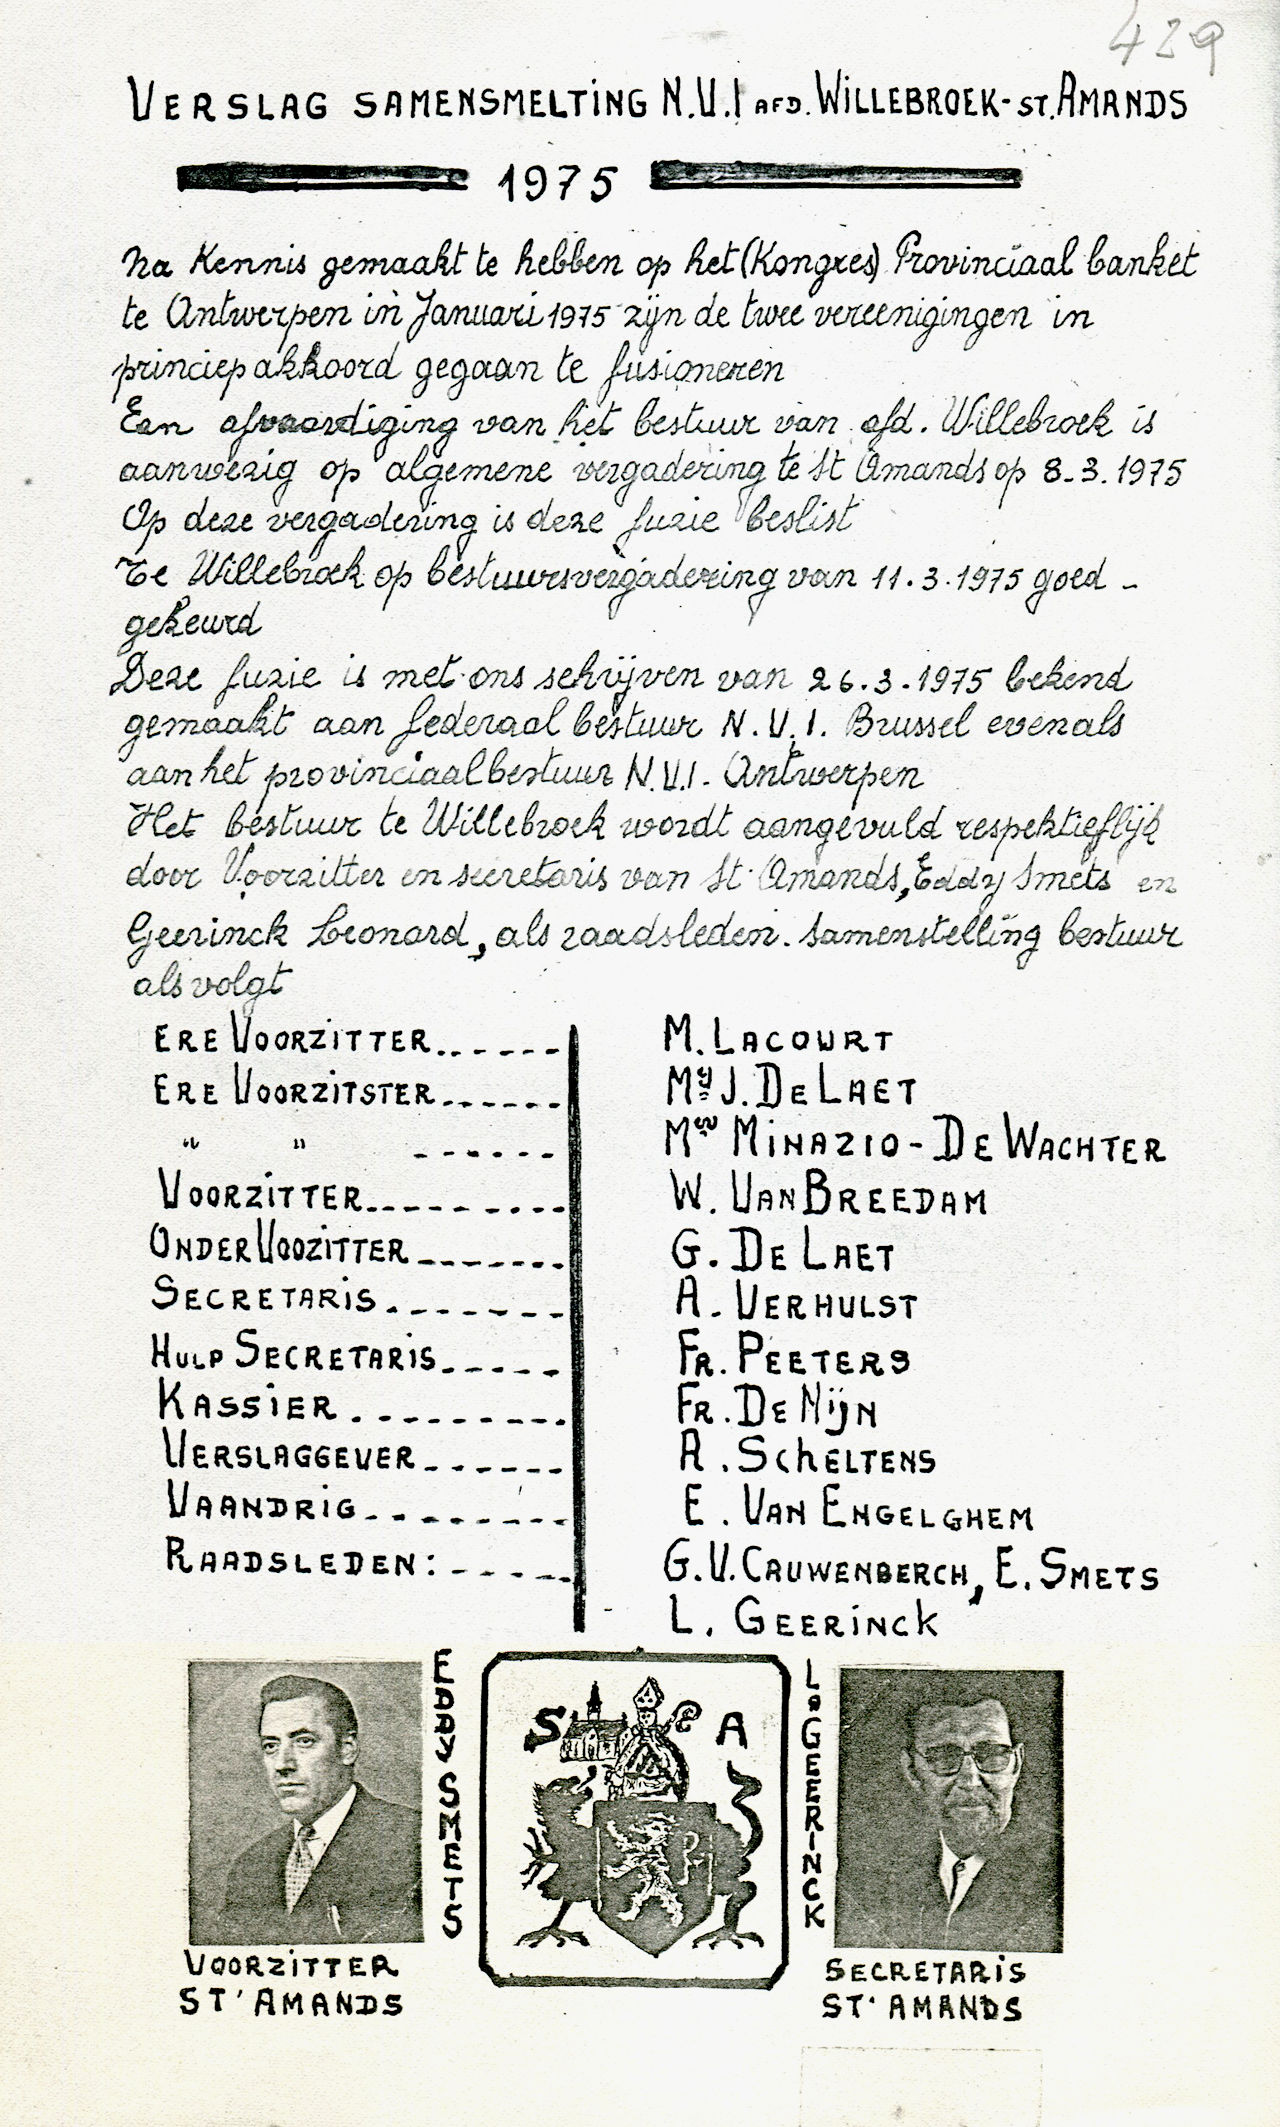 429
VERSLAG SAMENSMELTING N.V.I AFD. WILLEBROEK-ST. AMANDS
1975
Na Kennis gemaakt te hebben op het (Kongres) Provinciaal banket
te Antwerpen in Januari 1975 zijn de twee vereenigingen in
princiep akkoord gegaan te fusioneren
Een afvaardiging van het bestuur van afd. Willebroek is
aanwezig op algemene vergadering te St Amands op 8.3.1975
Op deze vergadering is deze fuzie beslist
Te Willebroek op bestuursvergadering van 11.3.1975 goed -
gekeurd
Deze fuzie is met ons schrijven van 26.3.1975 bekend
gemaakt aan federaal bestuur N.V.I. Brussel evenals
aan het provinciaal bestuur N.V.I. Antwerpen
Het bestuur te Willebroek wordt aangevuld respektieflijk
door Voorzitter en secretaris van St. Amands, Eddy Smets en
Geerinck Leonard, als raadsleden. Samenstelling bestuur
als volgt
ERE VOORZITTER....... M. LACOURT
ERE VOORZITSTER...... My J. DE LAET
" " ...... Mw MINAZIO-DE WACHTER
VOORZITTER.......... W. VAN BREEDAM
ONDERVOOZITTER....... G. DE LAET
SECRETARIS....... A. VERHULST
HULP SECRETARIS..... FR. PEETERS
KASSIER.......... FR. DE NIJN
VERSLAGGEVER...... A. SCHELTENS
VAANDRIG......... E. VAN ENGELGHEM
RAADSLEDEN:...... G.V. CAUWENBERCH, E. SMETS
L. GEERINCK
EDDY SMETS
S A
Lo GEERINCK
VOORZITTER
ST' AMANDS
SECRETARIS
ST' AMANDS